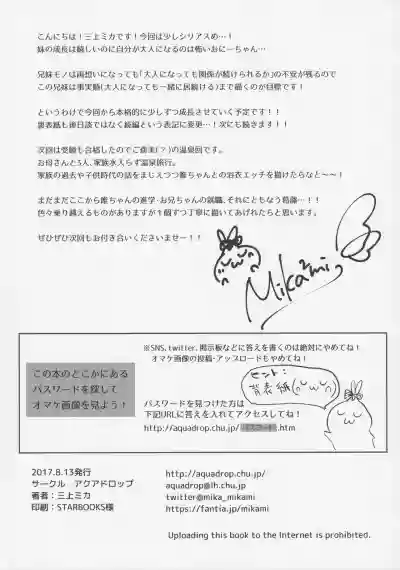 こんにちは！三上ミカです！今回は少しシリアスめ…！
妹の成長は嬉しいのに自分が大人になるのは怖いおにーちゃん…
兄妹モノは両想いになっても「大人になっても関係が続けられるか」の不安が残るので
この兄妹は事実婚(大人になっても一緒に居続ける)まで描くのが目標です！
というわけで今回から本格的に少しずつ成長させていく予定です！！
裏表紙も後日談ではなく続編という表記に変更…！次にも続きます！！
次回は受験も合格したのでご褒美(？)の温泉回です。
お母さんと3人、家族水入らず温泉旅行。
家族の過去や子供時代の話をまじえつつ雛ちゃんとの浴衣エッチを描けたらなと～～！
まだまだここから雛ちゃんの進学・お兄ちゃんの就職、それにともなう葛藤…！！
色々乗り越えるものがありますが１個ずつ丁寧に描いてあげれたらと思います。
ぜひぜひ次回もお付き合いくださいませー！！
Mikami
この本のどこかにある
パスワードを探して
オマケ画像を見よう！
※SNS、twitter、掲示板などに答えを書くのは絶対にやめてね！
オマケ画像の投稿・アップロードもやめてね！
ヒント：
背表紙
パスワードを見つけた方は
下記URLに答えを入れてアクセスしてね！
http://aquadrop.chu.jp/
.htm
2017.8.13発行
サークル　アクアドロップ
著者：三上ミカ
印刷：STARBOOKS様
http://aquadrop.chu.jp/
aquadrop@lh.chu.jp
twitter@mika_mikami
https://fantia.jp/mikami
Uploading this book to the Internet is prohibited.